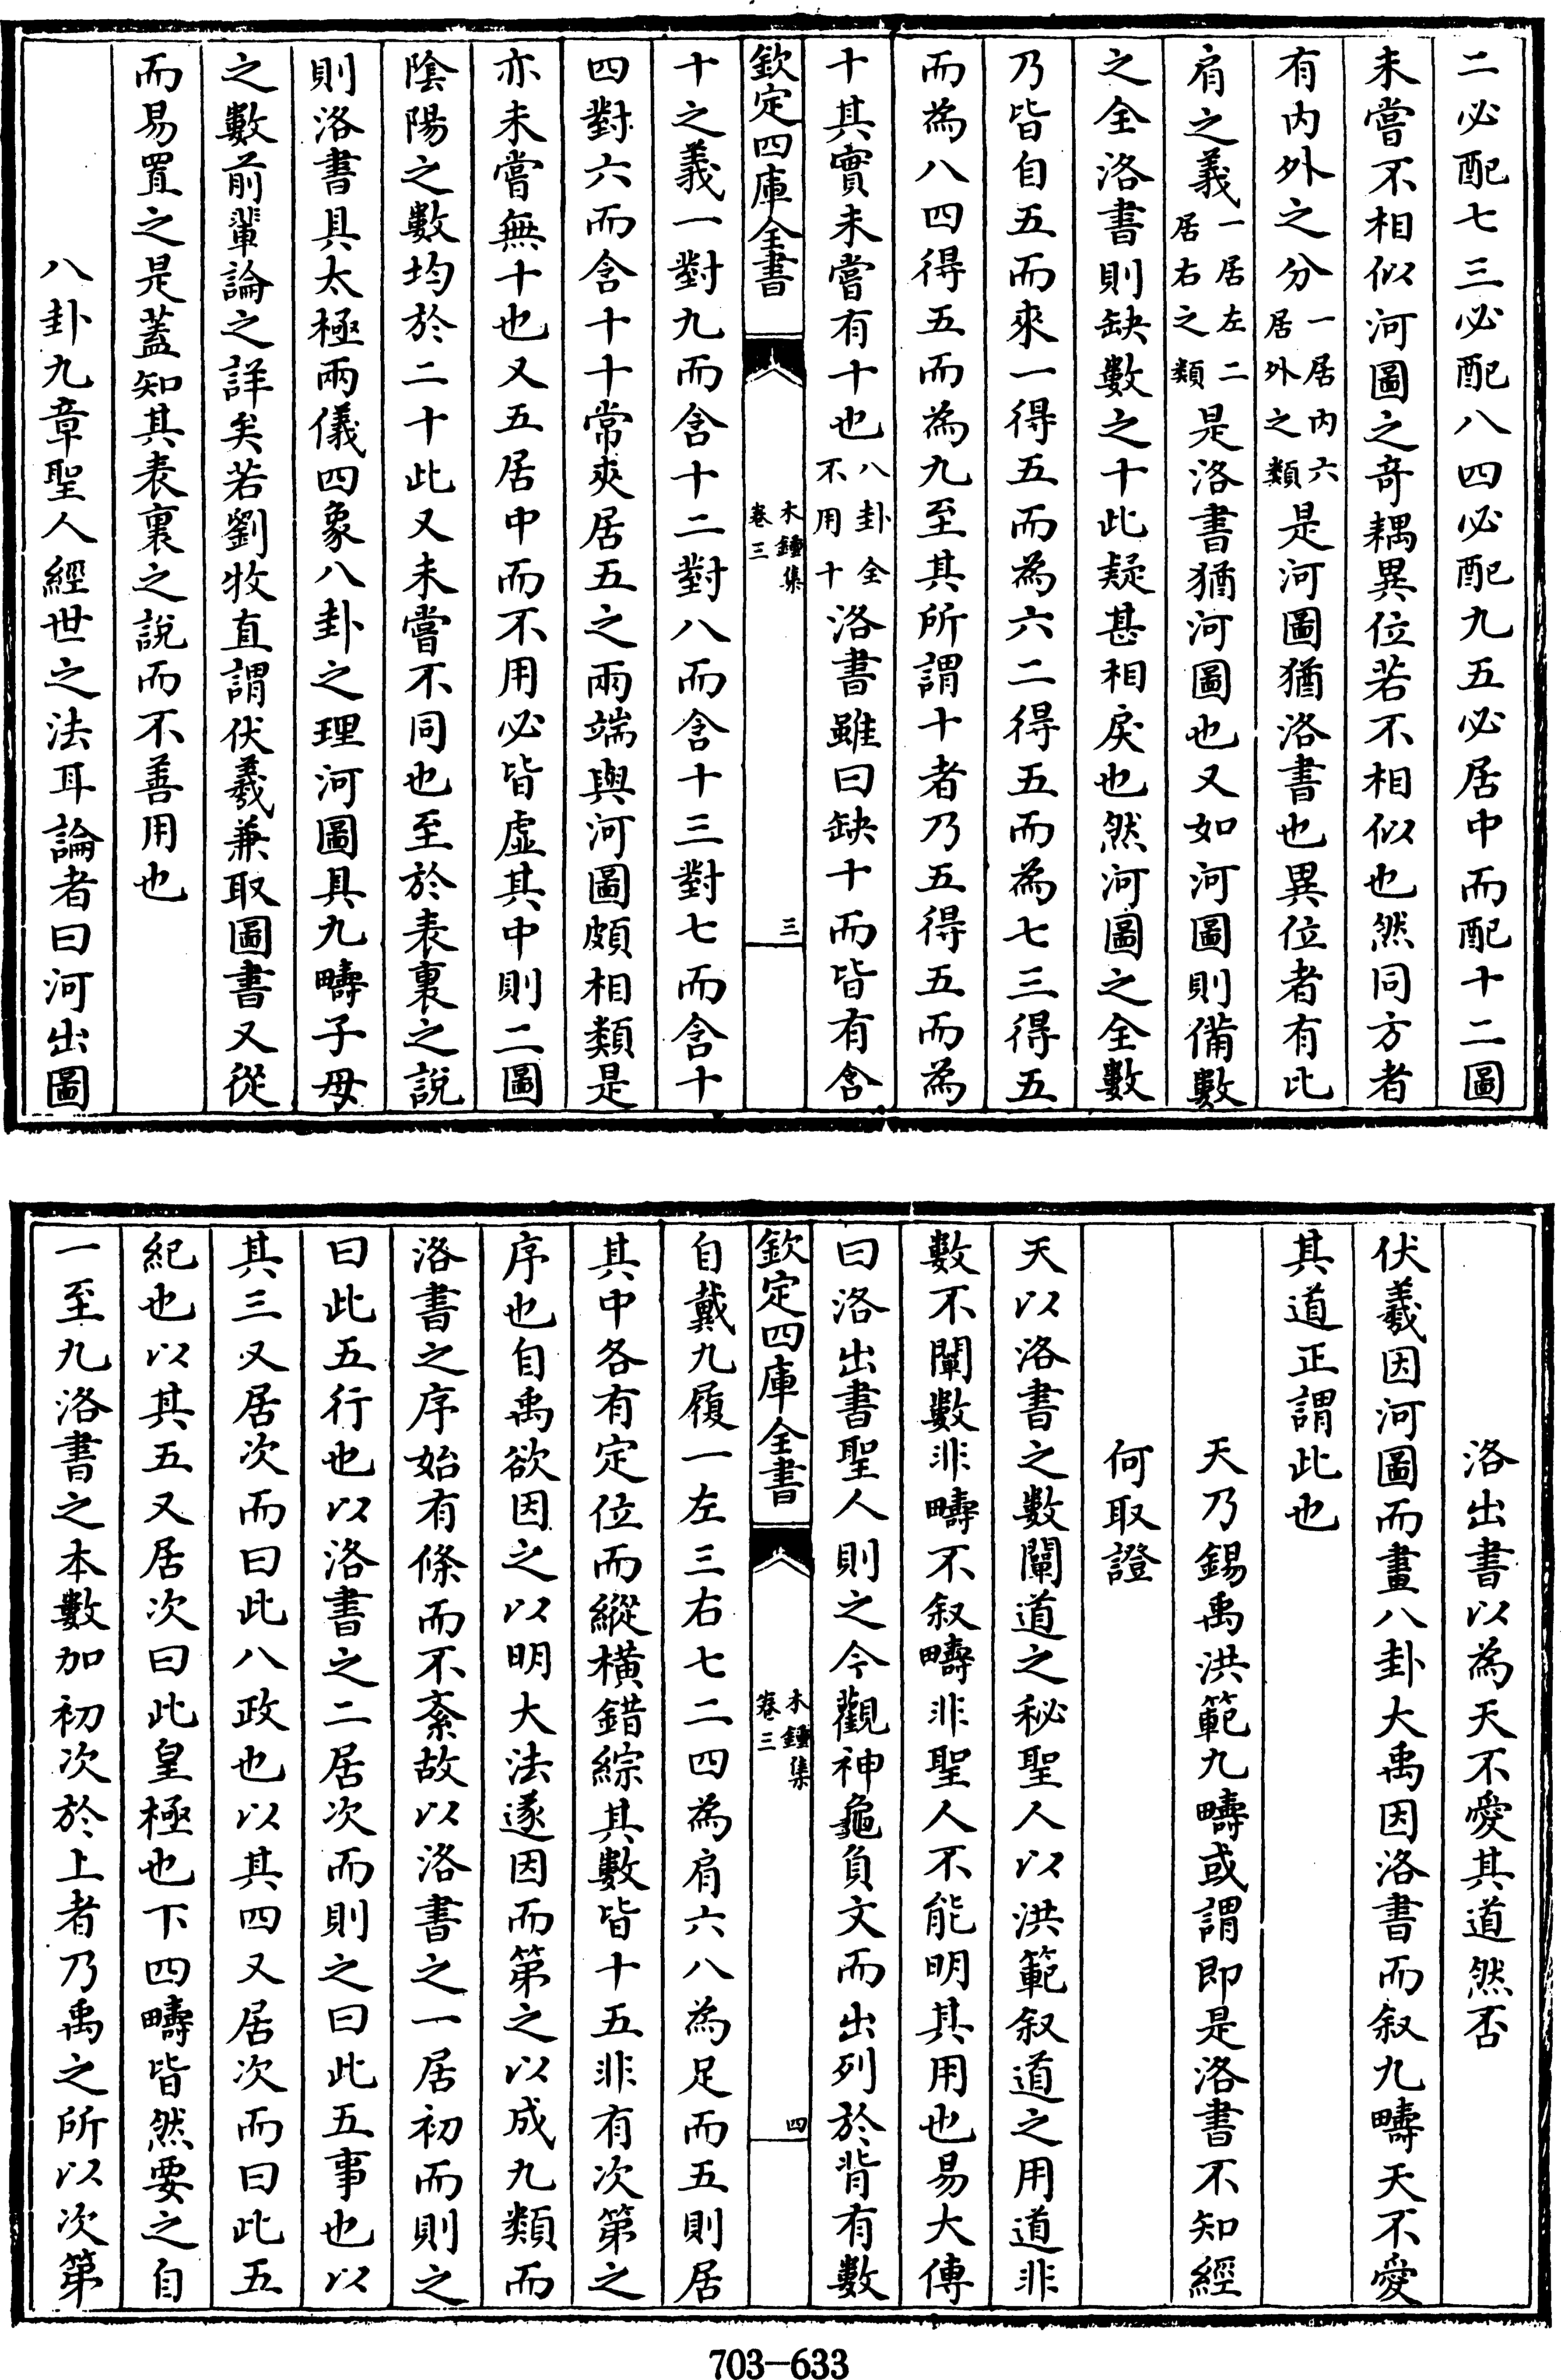 二必配七三必配八四必配九五必居中而配十二圖
未嘗不相似河圖之竒耦異位若不相似也然同方者
有内外之分一居内六居外之類是河圖猶洛書也異位者有比
肩之義一居左二居右之類是洛書猶河圖也又如河圖則備數
之全洛書則缺數之十此疑甚相戾也然河圖之全數
乃皆自五而來一得五而為六二得五而為七三得五
而為八四得五而為九至其所謂十者乃五得五而為
十其實未嘗有十也八卦全不用十洛書雖曰缺十而皆有含
欽定四庫全書
木鍾集
卷三
三
十之義一對九而含十二對八而含十三對七而含十
四對六而含十十常夾居五之兩端與河圖頗相類是
亦未嘗無十也又五居中而不用必皆虛其中則二圖
陰陽之數均於二十此又未嘗不同也至於表裏之說
則洛書具太極兩儀四象八卦之理河圖具九疇子母
之數前輩論之詳矣若劉牧直謂伏羲兼取圖書又從
而易置之是蓋知其表裏之說而不善用也
八卦九章聖人經世之法耳論者曰河出圖
洛出書以為天不愛其道然否
伏羲因河圖而畫八卦大禹因洛書而叙九疇天不愛
其道正謂此也
天乃錫禹洪範九疇或謂即是洛書不知經
何取證
天以洛書之數闡道之秘聖人以洪範叙道之用道非
數不闡數非疇不叙疇非聖人不能明其用也易大傳
曰洛出書聖人則之今觀神龜負文而出列於背有數
欽定四庫全書
木鍾集
卷三
四
自戴九履一左三右七二四為肩六八為足而五則居
其中各有定位而縱橫錯綜其數皆十五非有次第之
序也自禹欲因之以明大法遂因而第之以成九類而
洛書之序始有條而不紊故以洛書之一居初而則之
曰此五行也以洛書之二居次而則之曰此五事也以
其三又居次而曰此八政也以其四又居次而曰此五
紀也以其五又居次曰此皇極也下四疇皆然要之自
一至九洛書之本數加初次於上者乃禹之所以次第
703-633